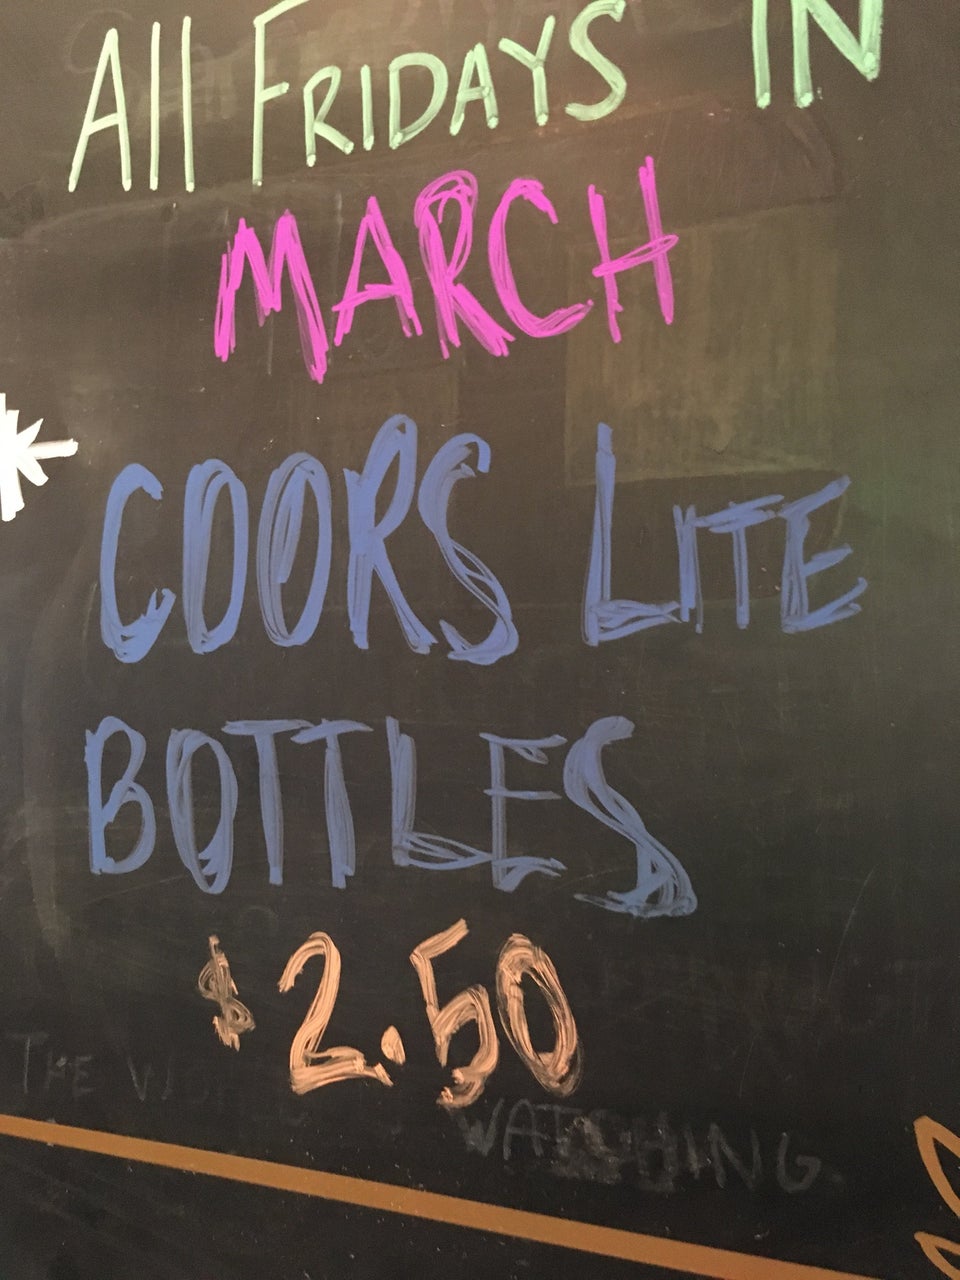 All FRIDAYS IN
MARCH
COORS LITE
BOTTLES
$2.50
THE
WATCHING